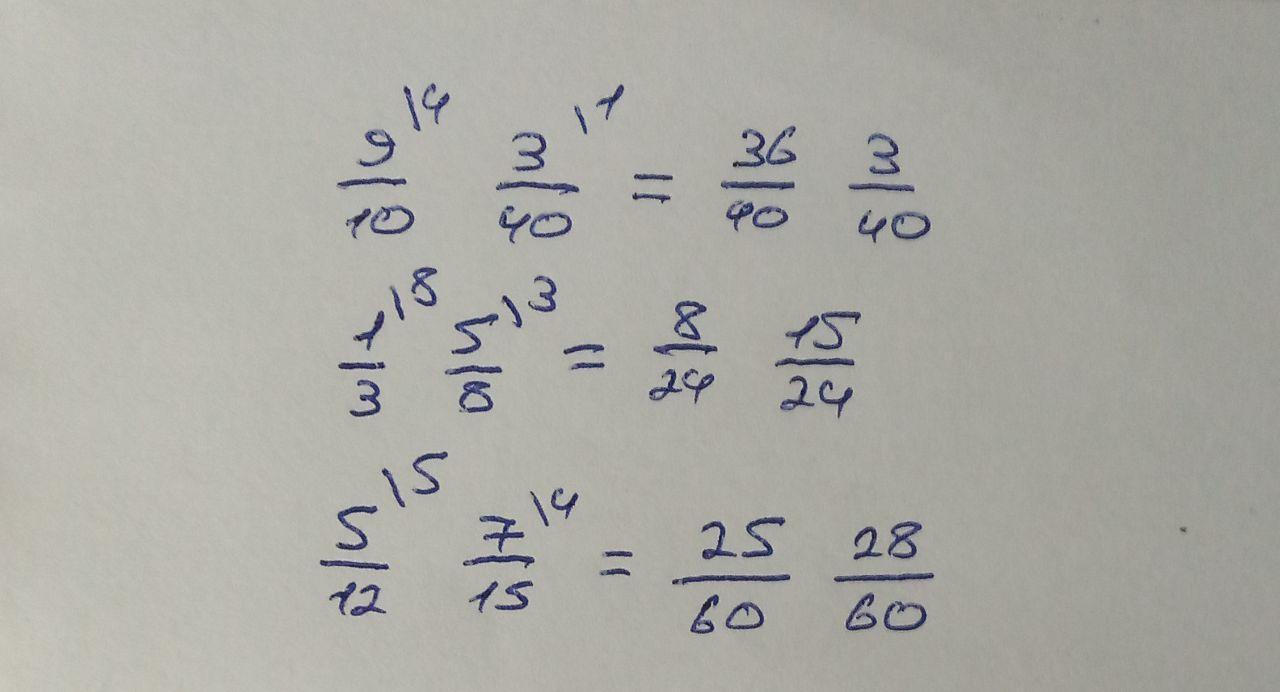 9/10 \4 3/40 \1 = 36/40 3/40
1/3 \8 5/8 \3 = 8/24 15/24
5/12 \5 7/15 \4 = 25/60 28/60